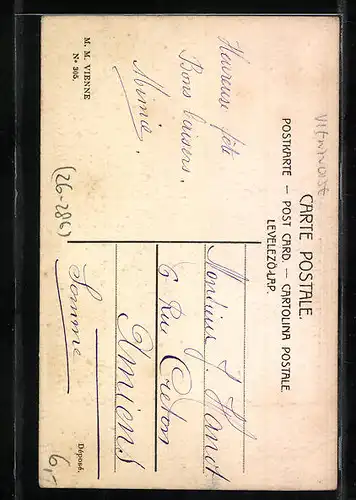 CARTE POSTALE.
POSTKARTE — POST CARD. — CARTOLINA POSTALE.
LEVELEZÖ-LAP.
Heureuse fête
Bons baisers.
Mimie.
M. M. VIENNE
Nº 305.
(26-286)
Monsieur J. Hanot
6 Rue Creton
Amiens
Somme
Déposé.
6,-